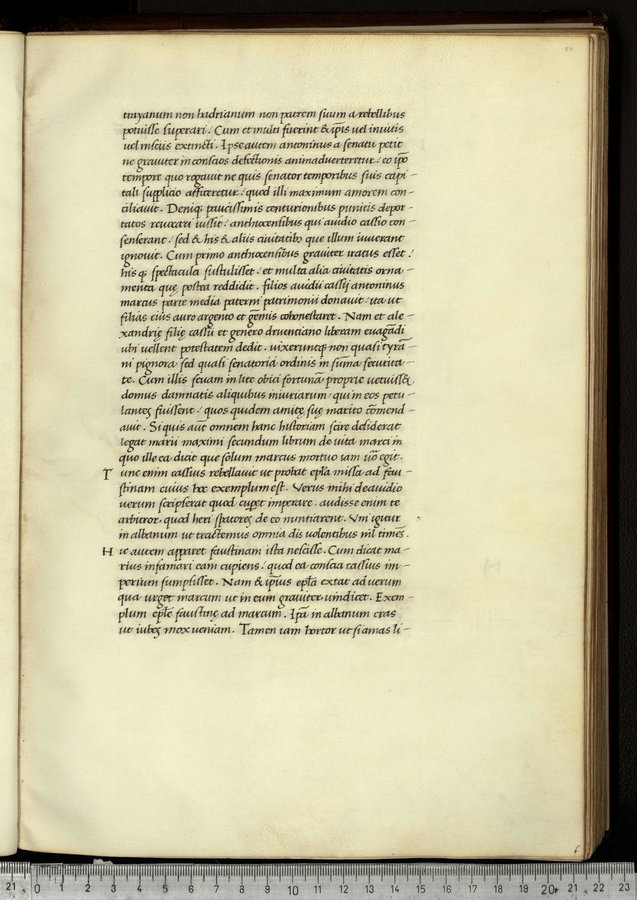 trayanum non hadrianum non patrem suum a rebellibus
potuisse superari. Cum et multi fuerint & ip̄is vel inuitis
uel insciis extincti. Ipse autem antoninus a senatu petit
ne grauiter in conscios defectionis animaduerteretur. eo ip̄o
tempore quo rogauit ne quis senator temporibus suis capi-
tali supplicio afficeretur. quod illi maximum amorem con-
ciliauit. Deniq; paucissimis centurionibus punitis depor-
tatos reuocari iussit. anthiocensibus qui auidio cassio con-
senserant. sed & his & aliis ciuitatib; que illum iuuerant
ignouit. Cum primo anthiocensibus grauiter iratus esset.
his q; spectacula sustulisset. et multa alia ciuitatis orna-
menta quę postea reddidit. filios auidii cassij antoninus
marcus parte media paterni patrimonii donauit. ita ut
filias eius auro argento et gemis cohonestaret. Nam et ale-
xandrię filię cassii et genero druentiano liberam euagādi
ubi uellent potestatem dedit. uixeruntq; non quasi tyrā-
ni pignora sed quasi senatorii ordinis in sūma securita-
te. Cum illis seuam in lite obici fortunā proprie uetuiss&
domus damnatis aliquibus iniuriarum. qui in eos petu-
lantes fuissent. quos quidem amitę suę marito cōmend-
auit. Si quis aūt omnem hanc historiam scire desiderat
legat marii maximi secundum librum de uita marci in
quo ille ea dicit que solum marcus mortuo iam uō egit.
Tunc enim cassius rebellauit ut probat ep̄la missa ad fau-
stinam cuius hoc exemplum est. Verus mihi de auidio
uerum scripserat quod cuperet imperare. audisse enim te
arbitror. quod heri spatores de eo nuntiarent. Vni igitur
in albanum ut tractemus omnia dis uolentibus nil timēs.
Hic autem apparet faustinam ista nescisse. Cum dicat ma-
rius infamari eam cupiens. quod ea conscia cassius im-
perium sumpsisset. Nam & ip̄ius ep̄la extat ad uerum
qua urget marcum ut in eum grauiter uindicet. Exem-
plum ep̄le faustinę ad marcum. Ip̄a in albanum cras
ut iubes mox ueniam. Tamen iam hortor ut si amas li-